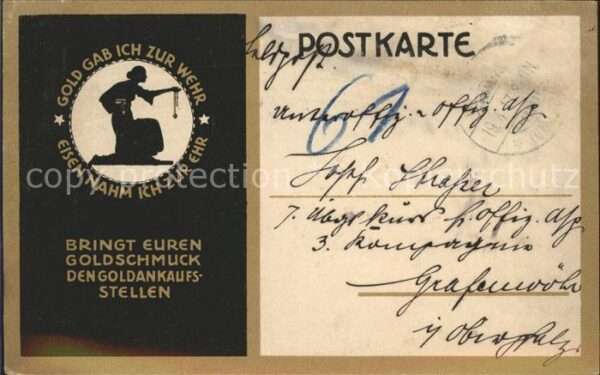 GOLD GAB ICH ZUR WEHR
EISEN NAHM ICH ZUR EHR
BRINGT EUREN
GOLDSCHMUCK
DEN GOLDANKAUFS-
STELLEN
POSTKARTE
Feldpost.
61
Unteroffiz.-Offiz. Asp.
Josef
7. Übgs. kurs f. Offiz. Asp
3. Kompagnie
Grafenwöhr
i/ Oberpfalz.
copyright